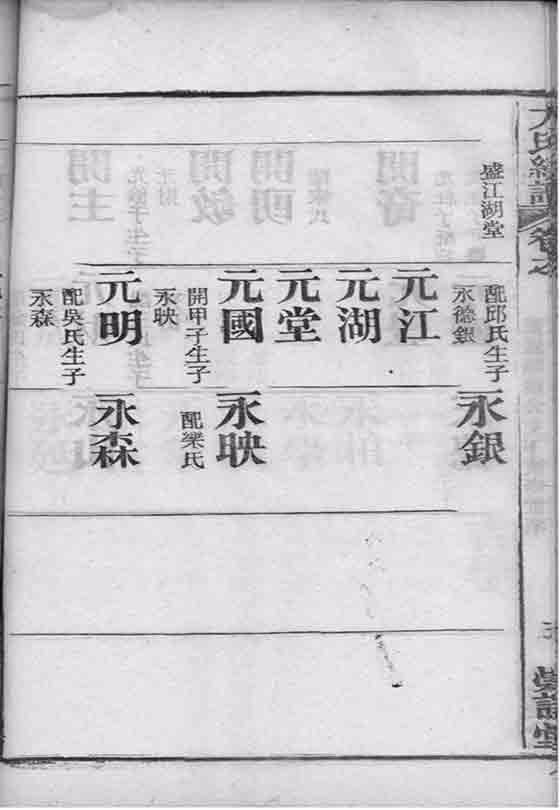 盛江湖堂
配邱氏生子
永德銀
元江
元湖
元堂
元國
開甲子生子
永映
元明
配吳氏生子
永森
永銀
永映
配梁氏
永森